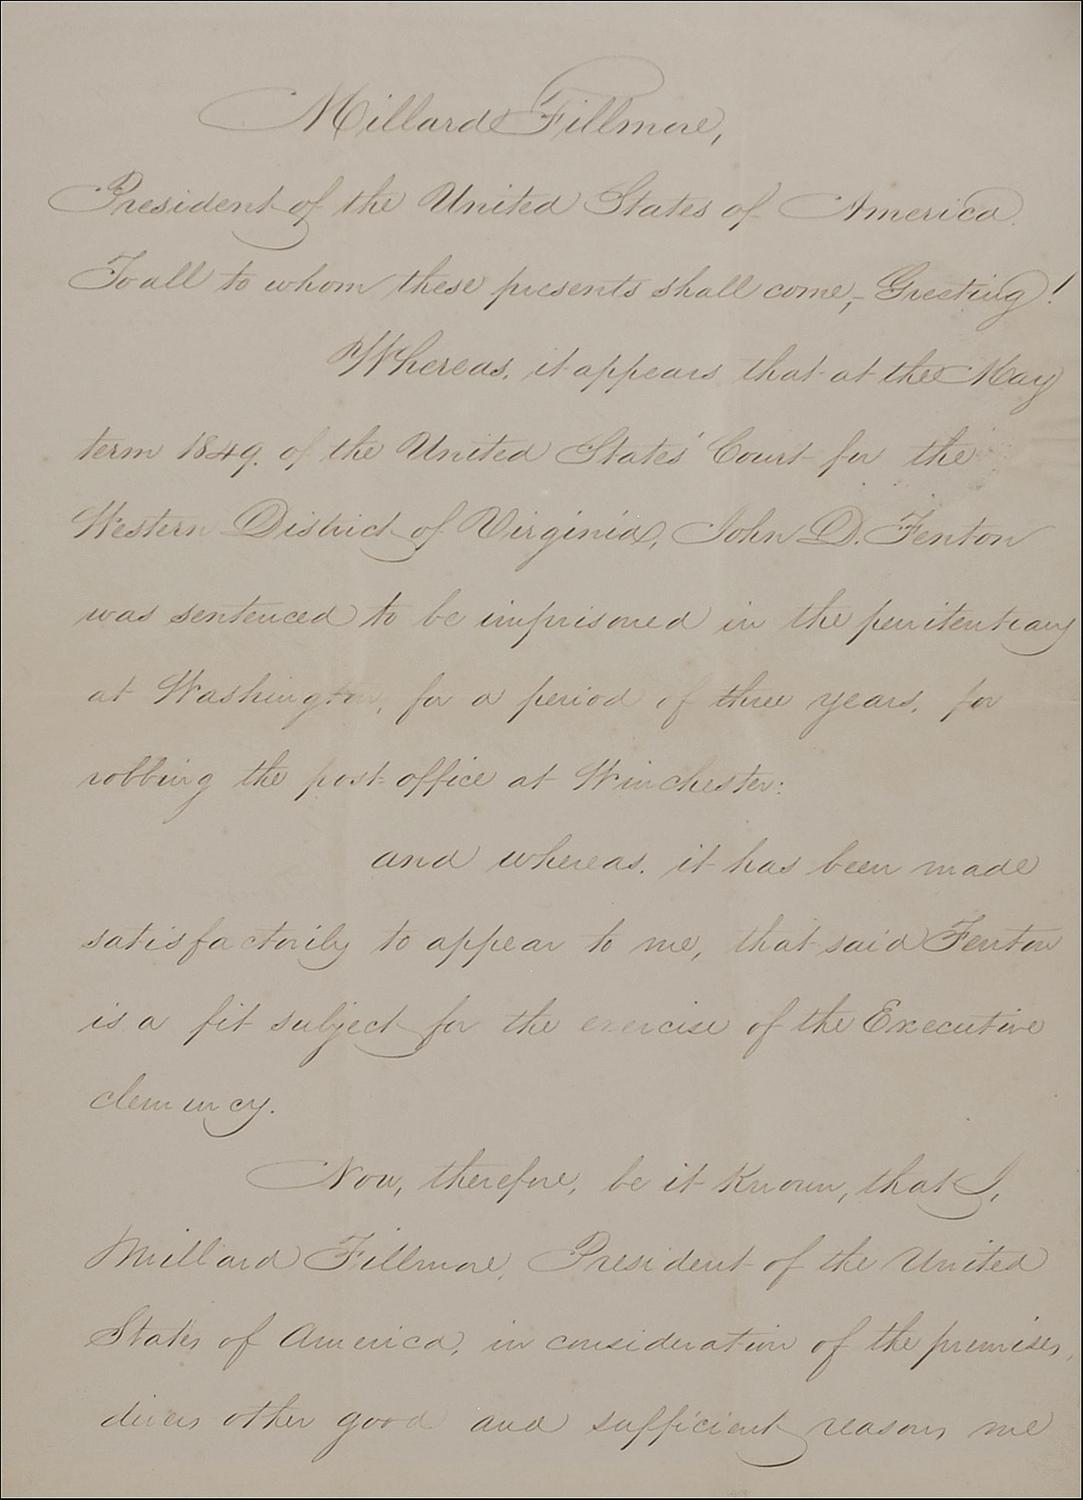 Millard Fillmore,
President of the United States of America.
To all to whom these presents shall come,- Greeting!
Whereas, it appears that at the May
term 1849. of the United States' Court for the
Western District of Virginia, John D. Fenton
was sentenced to be imprisoned in the penitentiary
at Washington, for a period of three years, for
robbing the post office at Winchester:
and whereas, it has been made
satisfactorily to appear to me, that said Fenton
is a fit subject for the exercise of the Executive
clemency.
Now, therefore, be it known, that I,
Millard Fillmore, President of the United
States of America, in consideration of the premises,
divers other good and sufficient reasons me